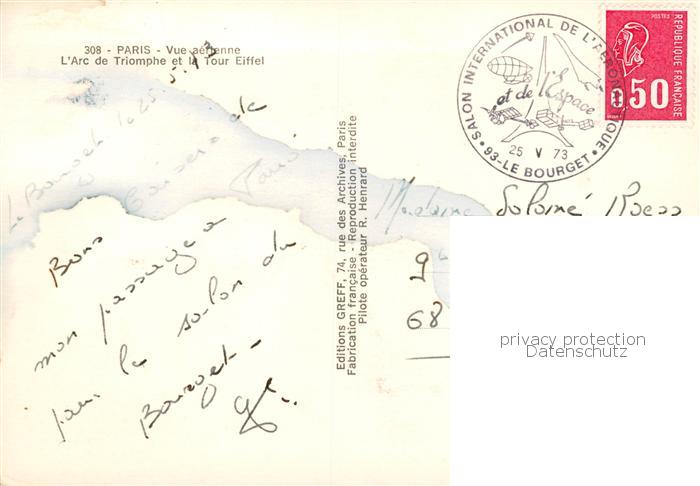 308 - PARIS - Vue aérienne
L'Arc de Triomphe et la Tour Eiffel
Le Bourget le 25.5.73
Bons baisers de
Paris
mon passage a
pour le salon du
Bourget -
Editions GREFF, 74, rue des Archives, Paris
Fabrication française - Reproduction interdite
Pilote opérateur R. Henrard
SALON INTERNATIONAL DE L'AERONAUTIQUE
et de l'Espace
25 V 73
• 93-LE BOURGET •
POSTES
RÉPUBLIQUE FRANÇAISE
0,50
Madame Salomé
9
68
privacy protection
Datenschutz